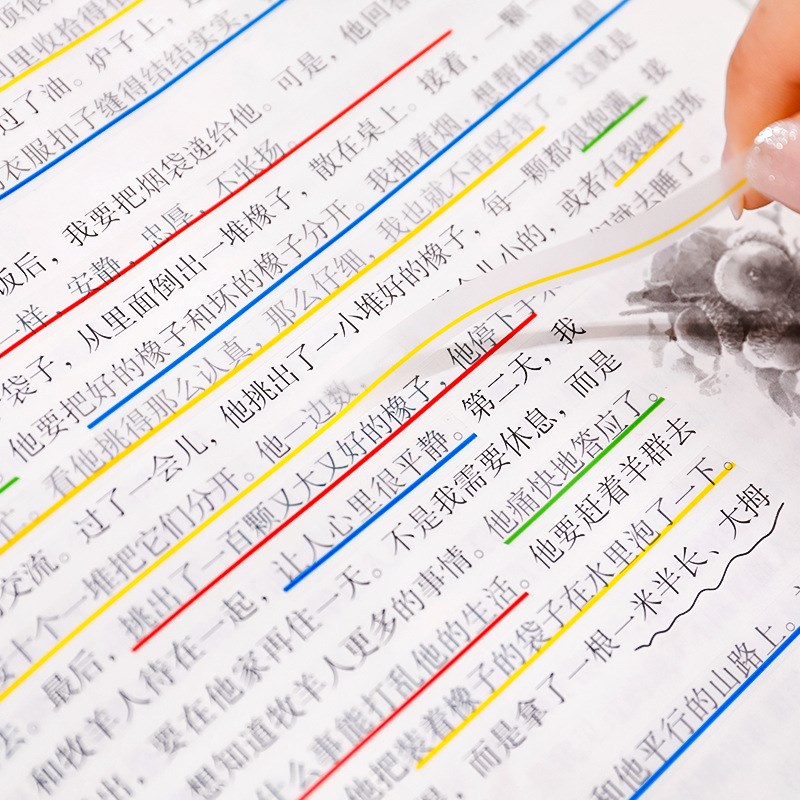 间里收拾得很
过了油。炉子上，
衣服扣子缝得结结实实，
饭后，我要把烟袋递给他。可是，他回答
一样，安静，忠厚，不张扬。
袋子，从里面倒出一堆橡子，散在桌上。接着，一颗一
他要把好的橡子和坏的橡子分开。我抽着烟，想帮他挑，但
看他挑得那么认真，那么仔细，我也就不再坚持了。这就是
交流。过了一会儿，他挑出了一小堆好的橡子，每一颗都很饱满。接
十个一堆把它们分开。他一边数，个儿小的，或者有裂缝的拣
最后，挑出了一百颗又大又好的橡子，他停下手来 们就去睡了。
和牧羊人待在一起，让人心里很平静。第二天，我
出，要在他家再住一天。不是我需要休息，而是
想知道牧羊人更多的事情。他痛快地答应了。
什么事能打乱他的生活。他要赶着羊群去
他把装着橡子的袋子在水里泡了一下。
，而是拿了一根一米半长、大拇
和他平行的山路上。